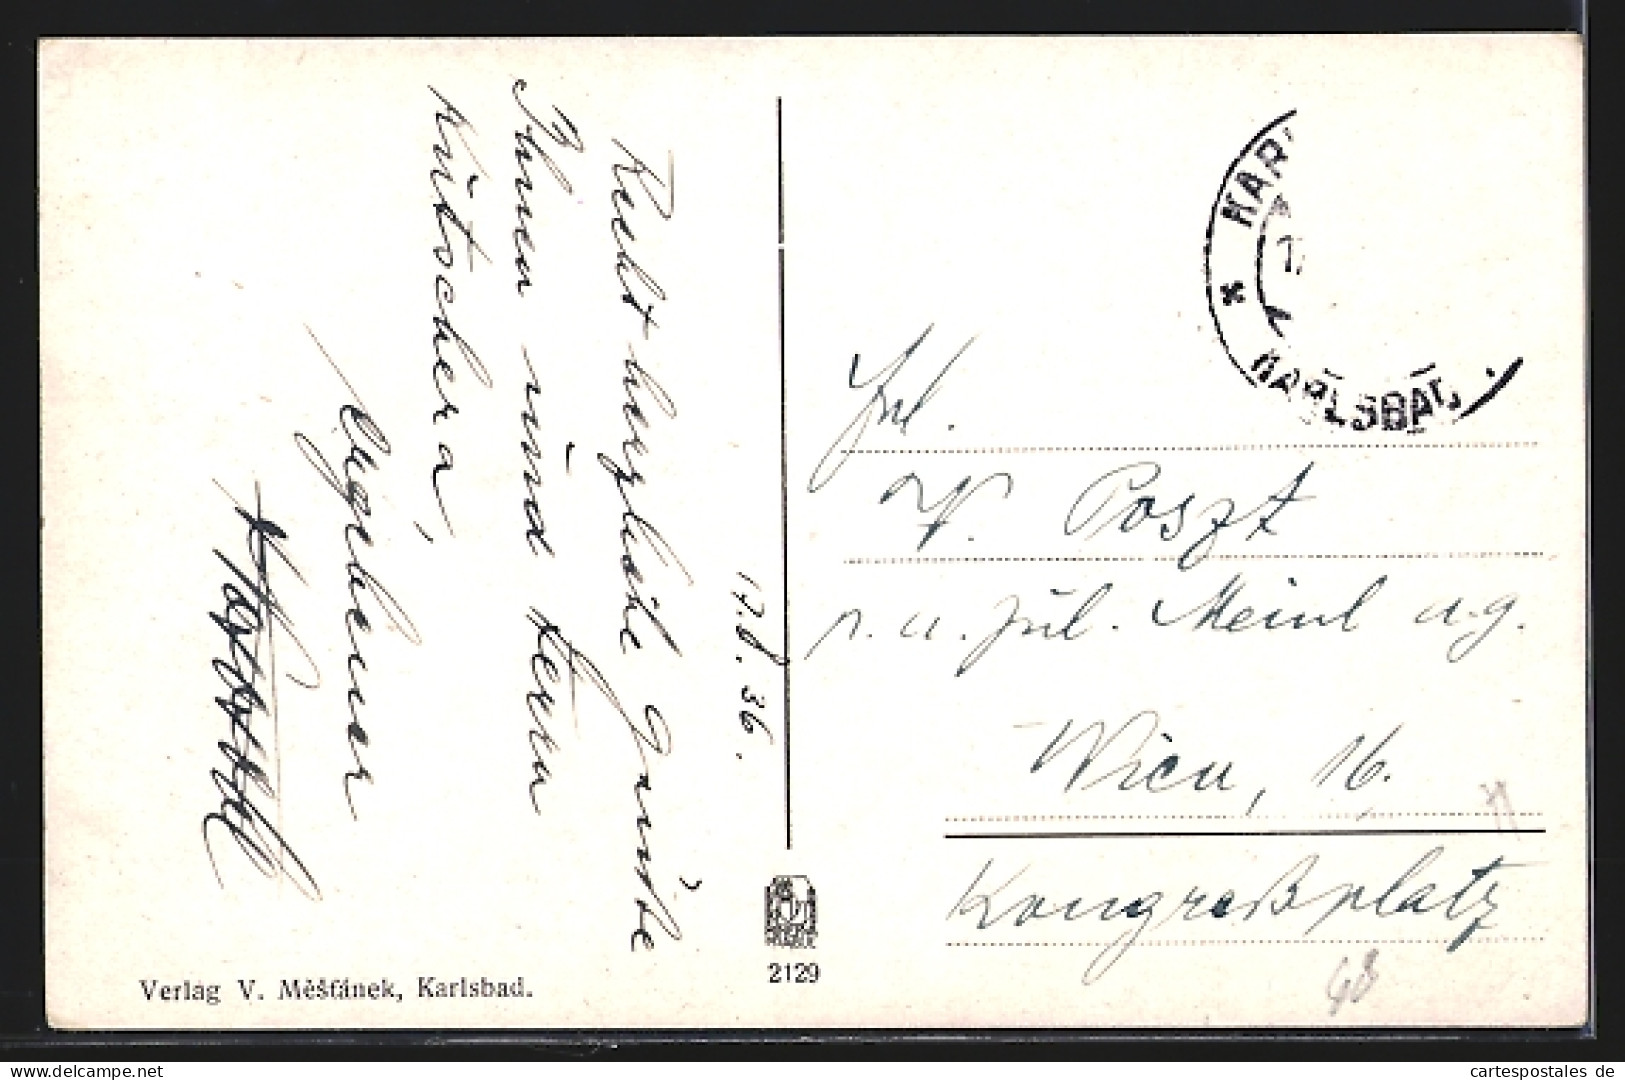 17.8.36.
Recht herzliche Grüße
Ihnen und Herrn
Kutschera,
ergebener
KAR
KARLSBAD
Frl.
P. Poszt
p. A. Jul. Meinl A.G.
Wien, 16.
Kongreßplatz
48
2129
Verlag V. Měšťánek, Karlsbad.
delcampe.net
cartespostales de